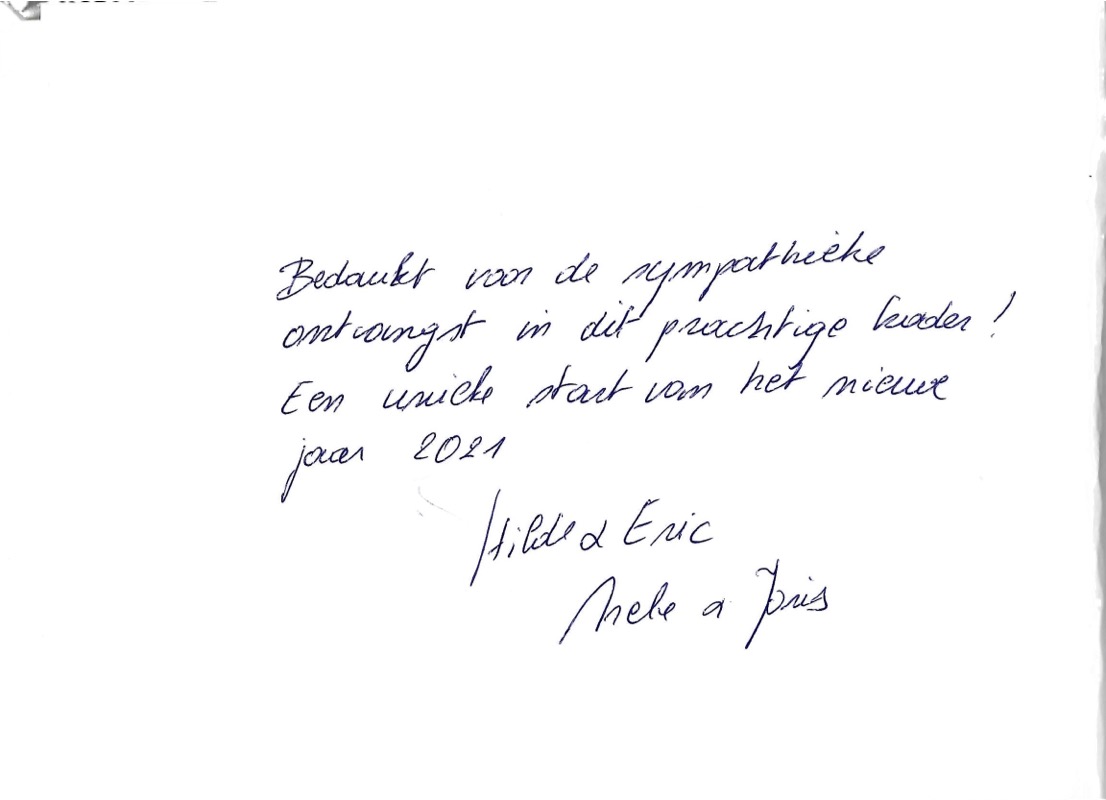 Bedankt voor de sympathieke
ontvangst in dit prachtige kader!
Een unieke start van het nieuwe
jaar 2021
Hilde & Eric
& Joris